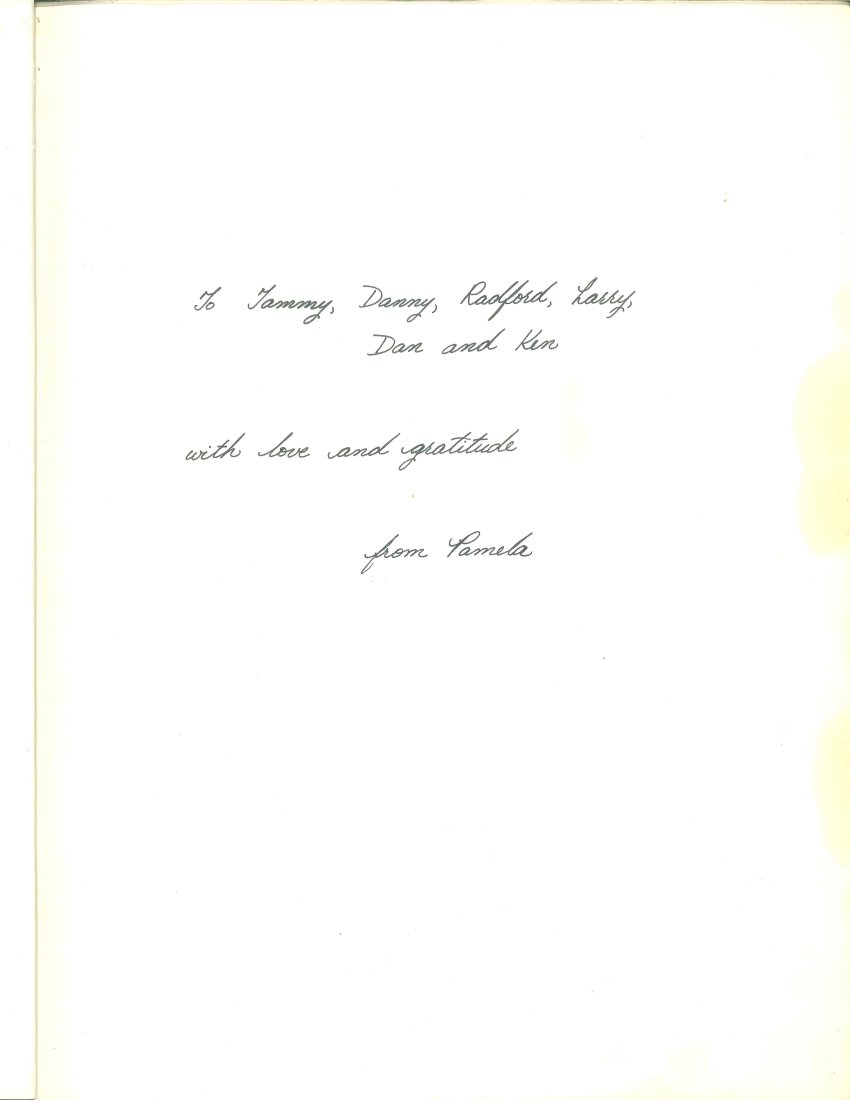 To Tammy, Danny, Radford, Larry,
Dan and Ken
with love and gratitude
from Pamela